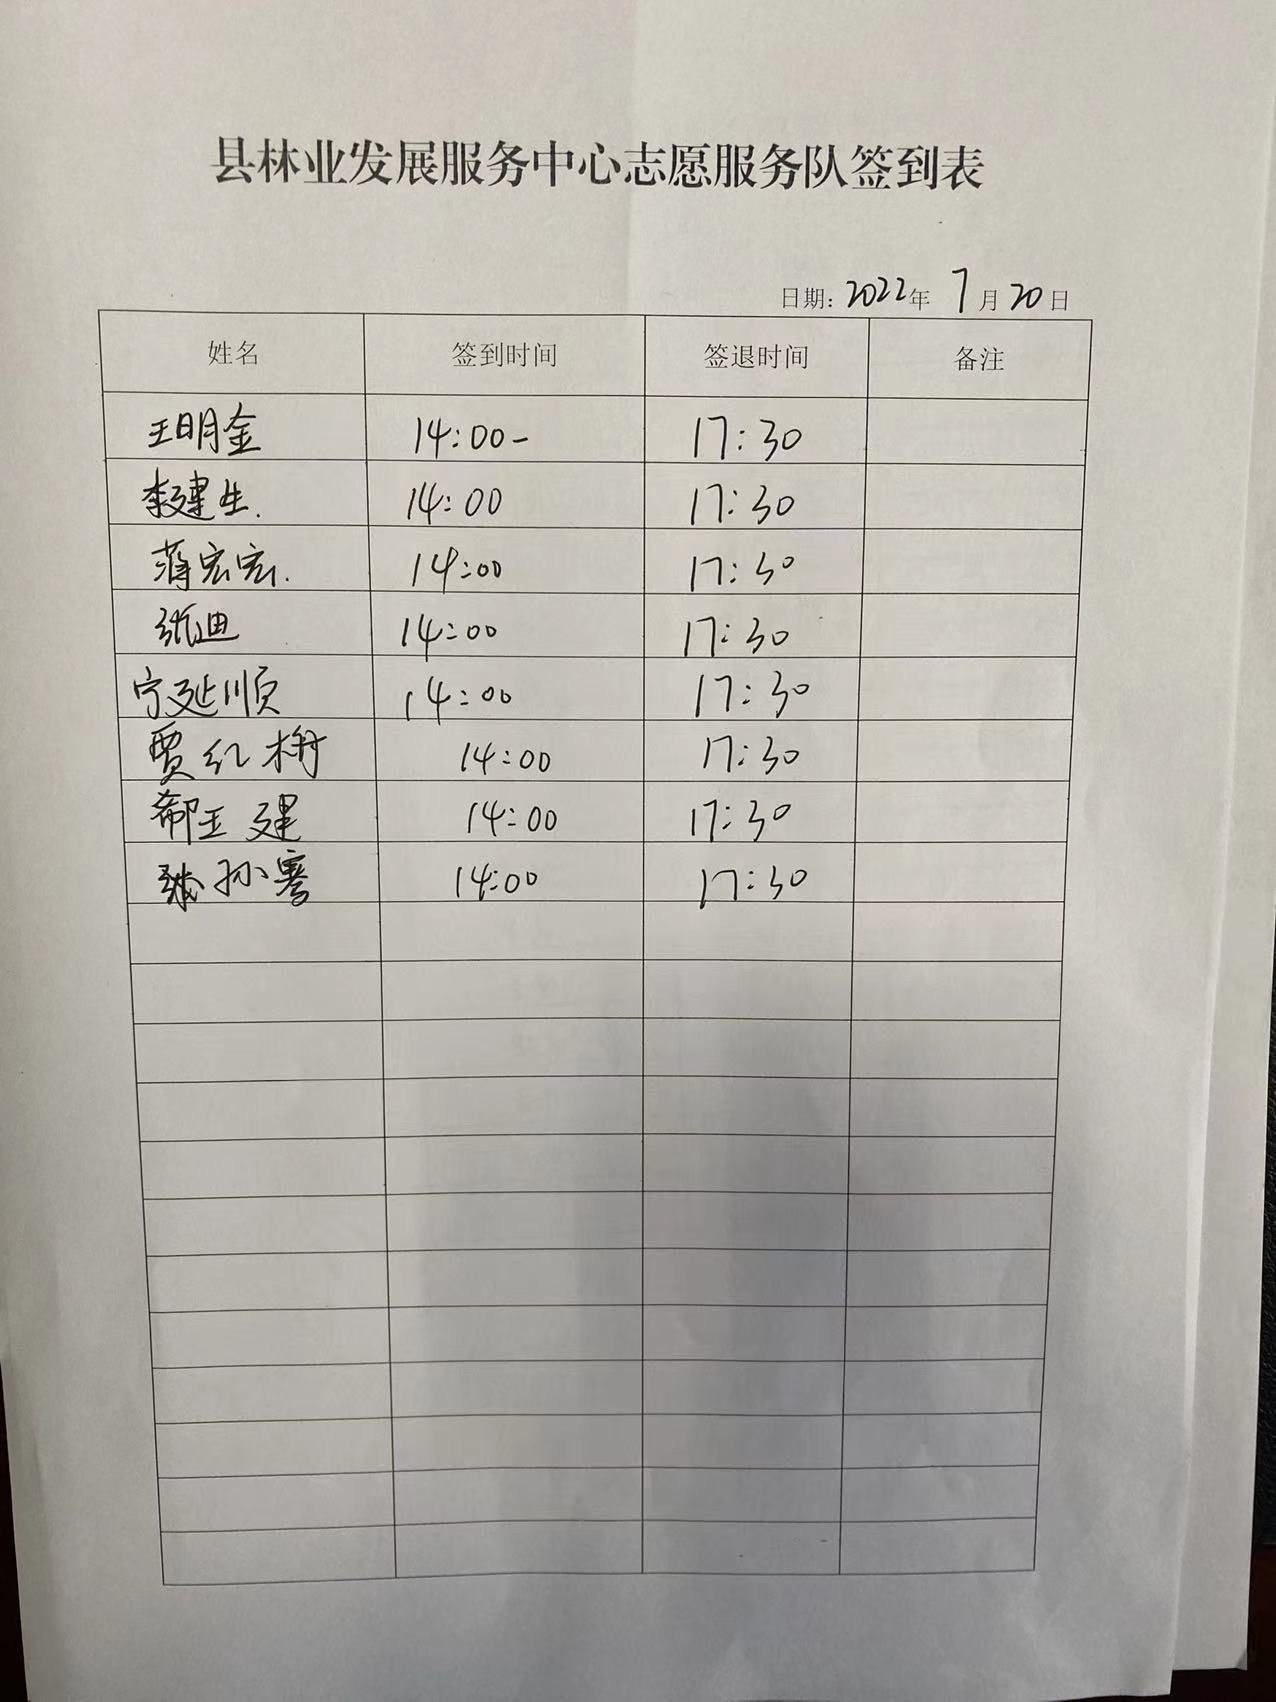 县林业发展服务中心志愿服务队签到表
日期: 2022年 7月20日
姓名 签到时间 签退时间 备注
王明金 14:00- 17:30
李建生. 14:00 17:30
蒋宏宏. 14:00 17:30
张迪 14:00 17:30
宁延顺 14:00 17:30
贾红梅 14:00 17:30
郗王建 14:00 17:30
张孙骞 14:00 17:30